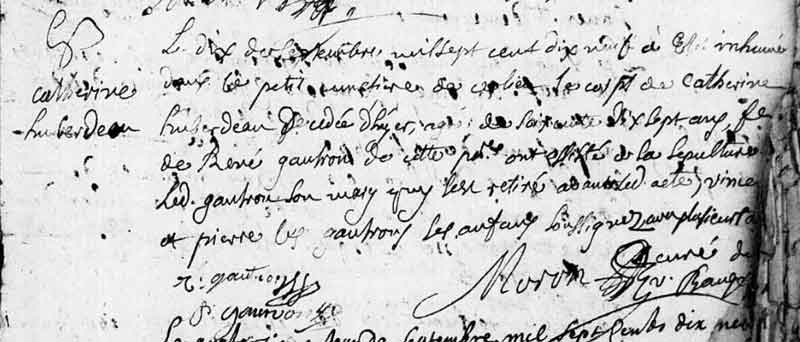 S
catherine
huberdeau
Le dix de septembre mil sept cent dix neuf a esté inhumé
dans le petit cimetiere de ce lieu le corps de Catherine
huberdeau decedée d'hyer, agée de soixante dix sept ans, fe
de René gautron de cette psse ont assisté a la sepulture
led. gautron son mary quy s'est retiré avant led. acte, vince
et pierre les gautrons les enfans soussignez avec plusieurs a
curé de
Moron
v. gautron
P. gautron
Le septembre mil sept cents dix neuf